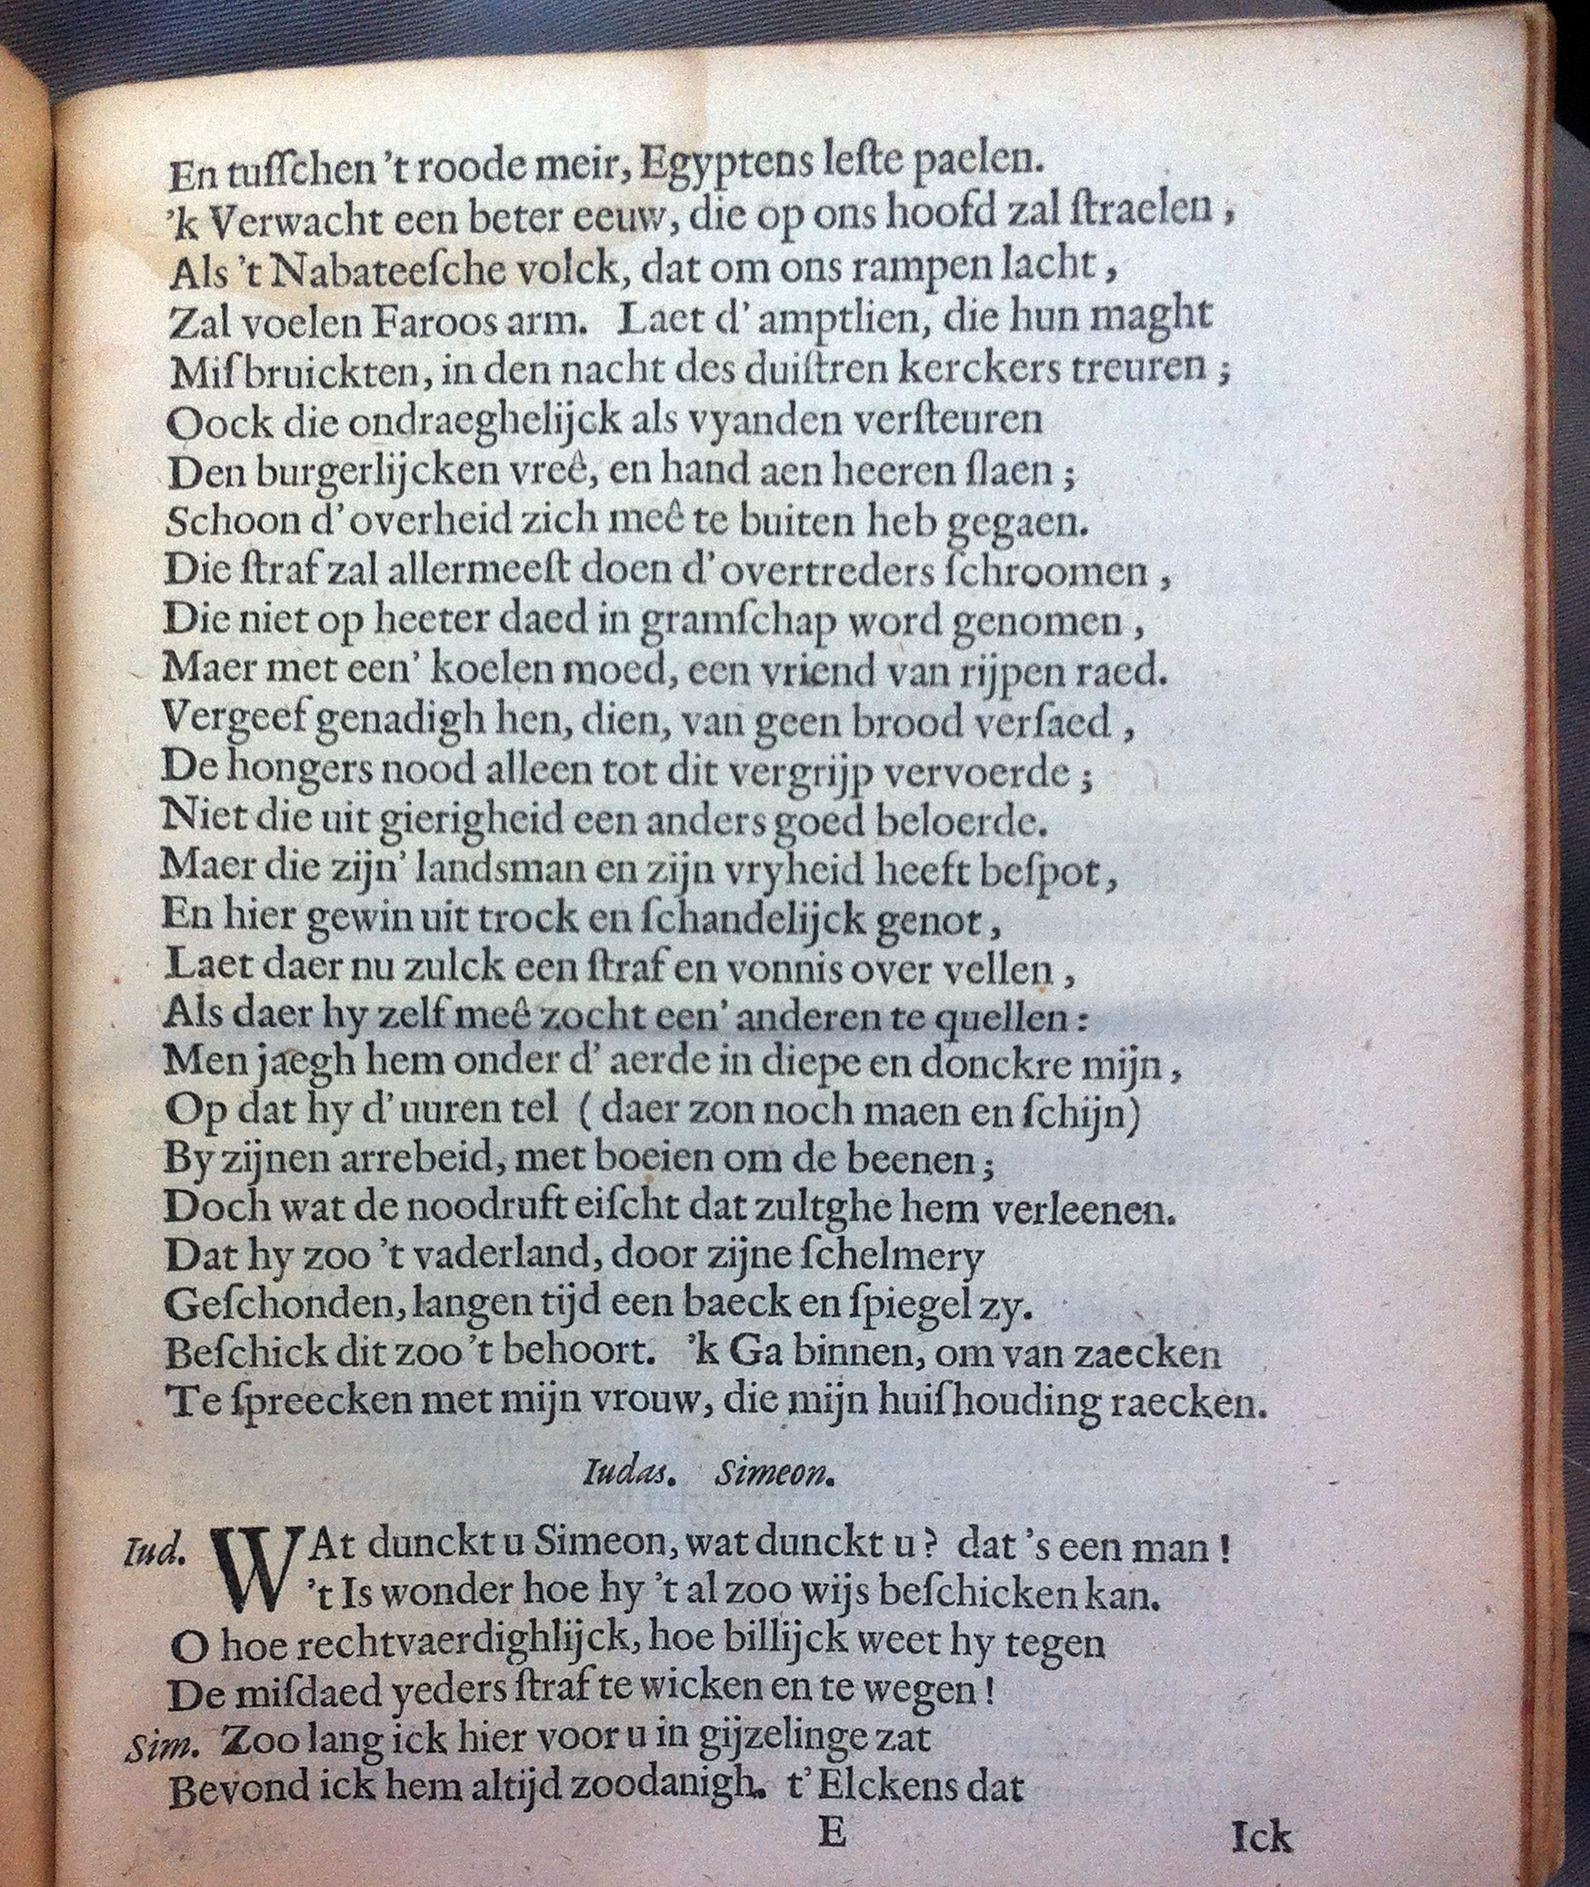 En tuſſchen 't roode meir, Egyptens leſte paelen.
'k Verwacht een beter eeuw, die op ons hoofd zal ſtraelen,
Als 't Nabateeſche volck, dat om ons rampen lacht,
Zal voelen Faroos arm. Laet d' amptlien, die hun maght
Miſbruickten, in den nacht des duiſtren kerckers treuren;
Oock die ondraeghelijck als vyanden verſteuren
Den burgerlijcken vreê, en hand aen heeren ſlaen;
Schoon d'overheid zich meê te buiten heb gegaen.
Die ſtraf zal allermeeſt doen d'overtreders ſchroomen,
Die niet op heeter daed in gramſchap word genomen,
Maer met een' koelen moed, een vriend van rijpen raed.
Vergeef genadigh hen, dien, van geen brood verſaed,
De hongers nood alleen tot dit vergrijp vervoerde;
Niet die uit gierigheid een anders goed beloerde.
Maer die zijn' landsman en zijn vryheid heeft beſpot,
En hier gewin uit trock en ſchandelijck genot,
Laet daer nu zulck een ſtraf en vonnis over vellen,
Als daer hy zelf meê zocht een' anderen te quellen:
Men jaegh hem onder d' aerde in diepe en donckre mijn,
Op dat hy d'uuren tel (daer zon noch maen en ſchijn)
By zijnen arrebeid, met boeien om de beenen;
Doch wat de noodruft eiſcht dat zultghe hem verleenen.
Dat hy zoo 't vaderland, door zijne ſchelmery
Geſchonden, langen tijd een baeck en ſpiegel zy.
Beſchick dit zoo 't behoort. 'k Ga binnen, om van zaecken
Te ſpreecken met mijn vrouw, die mijn huiſhouding raecken.
Iudas. Simeon.
Iud. WAt dunckt u Simeon, wat dunckt u? dat 's een man!
't Is wonder hoe hy 't al zoo wijs beſchicken kan.
O hoe rechtvaerdighlijck, hoe billijck weet hy tegen
De miſdaed yeders ſtraf te wicken en te wegen!
Sim. Zoo lang ick hier voor u in gijzelinge zat
Bevond ick hem altijd zoodanigh. t' Elckens dat
E
Ick